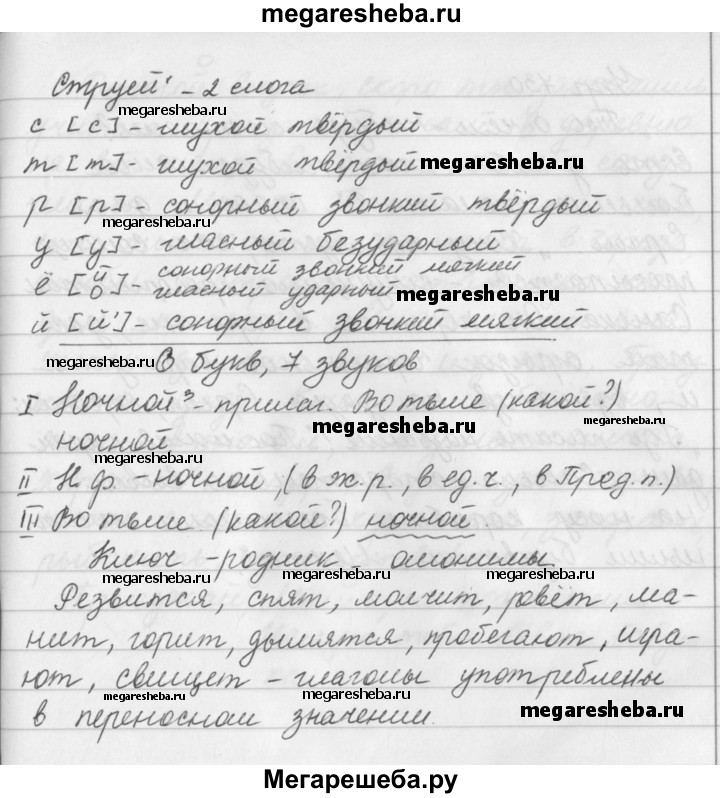 megaresheba.ru
Струей¹ – 2 слога
megaresheba.ru
с [с] – глухой твёрдый
т [т] – глухой твёрдый megaresheba.ru
р [р] – сонорный звонкий твёрдый
megaresheba.ru
у [у] – гласный безударный
ё [й о] – сонорный звонкий мягкий
гласный ударный megaresheba.ru
й [й'] – сонорный звонкий мягкий
megaresheba.ru 6 букв, 7 звуков
I Ночной³ – прилаг. Во тьме (какой?)
megaresheba.ru megaresheba.ru
ночной
megaresheba.ru
II Н.ф. – ночной, (в ж.р., в ед.ч., в Пред.п.)
III Во тьме (какой?) ночной.
Ключ – родник – омонимы
megaresheba.ru megaresheba.ru megaresheba.ru
Резвится, спят, молчит, ревёт, ма-
нит, горит, дымятся, пробегают, игра-
ют, свищет – глаголы употреблены
megaresheba.ru megaresheba.ru
в переносном значении.
megaresheba.ru
Мегарешеба.ру